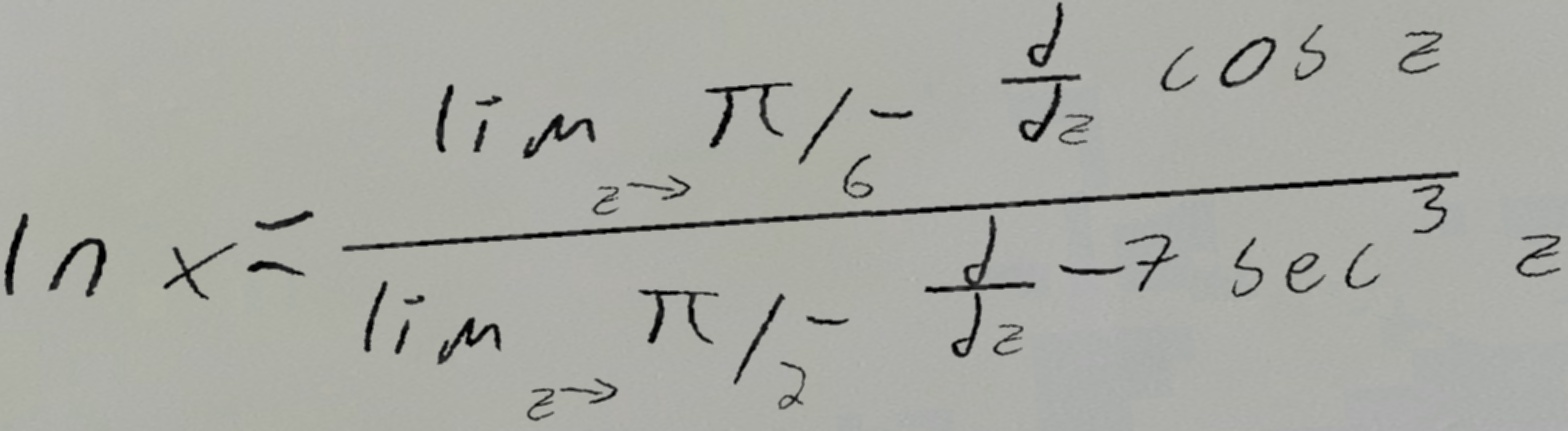 ln x = \frac{\lim_{z \to \pi/6^-} \frac{d}{dz} \cos z}{\lim_{z \to \pi/2^-} \frac{d}{dz} -7 \sec^3 z}